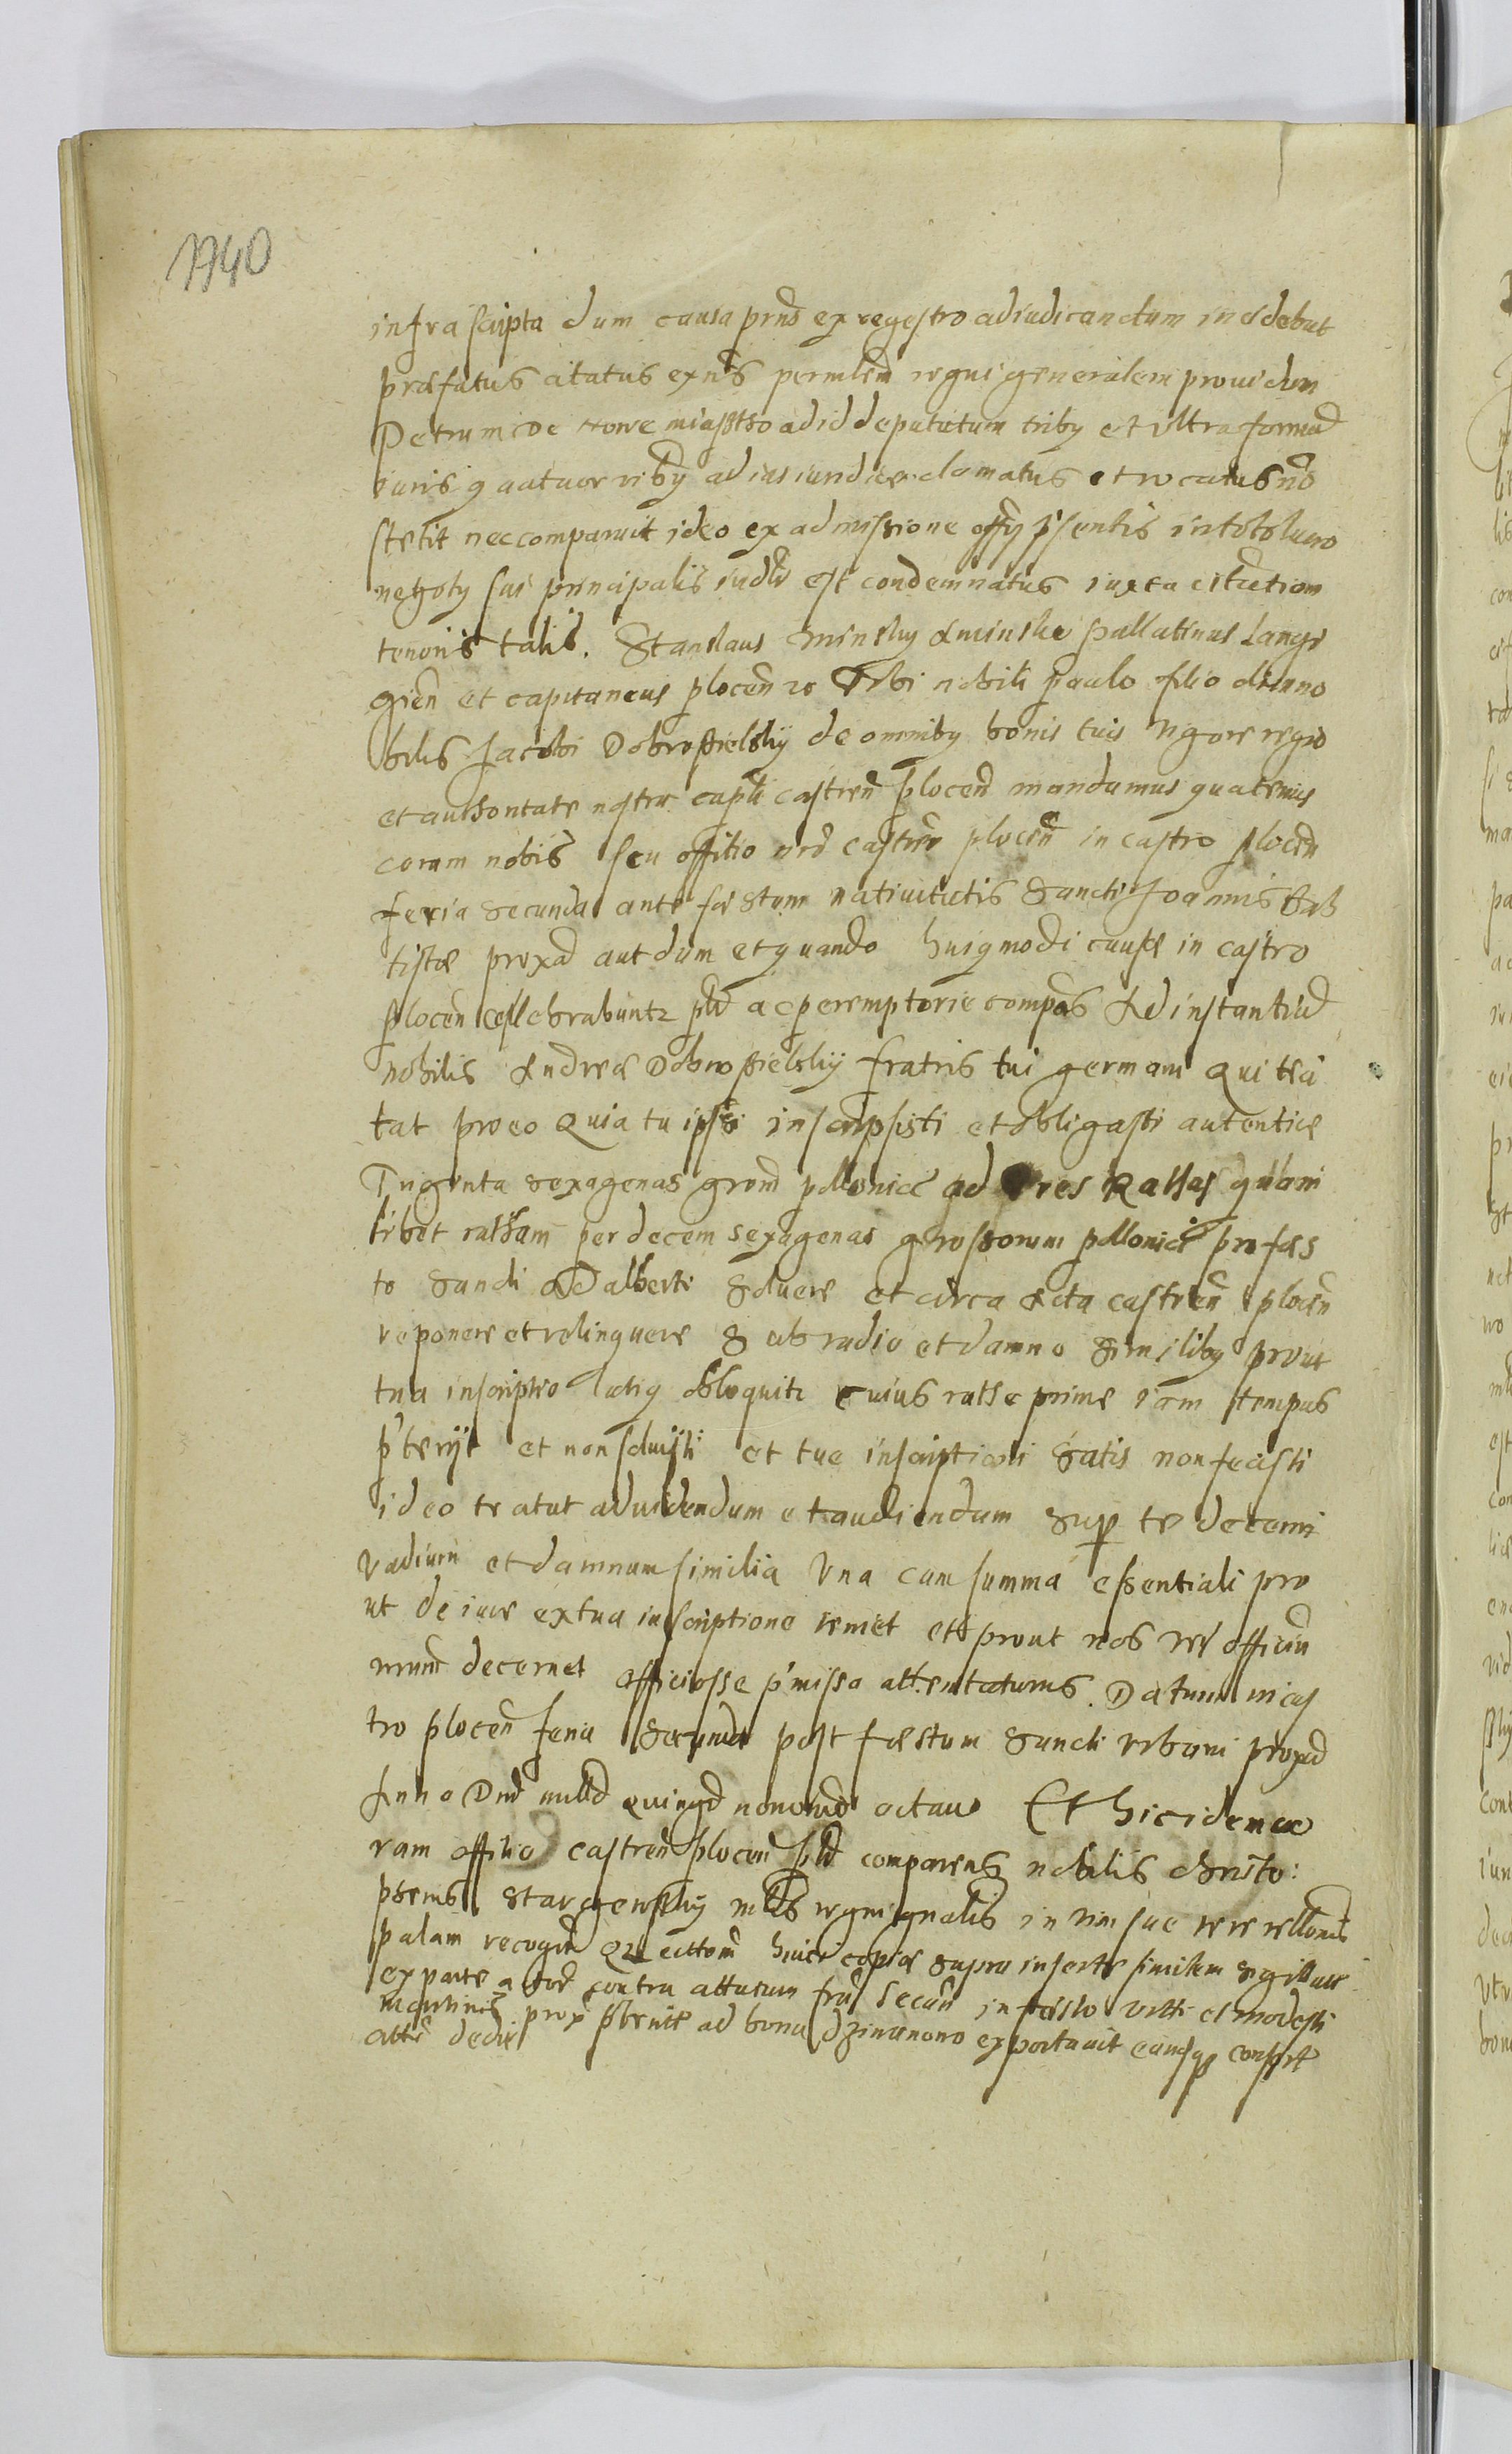 1740
infra scripta dum causa prns ex regestro adiudicandum incidebat
præfatus citatus exns per mlem regni generalem prouidum
Petrum de nowe miastho ad id deputatum triby et vltra formā
iuris quatuor vicibq ad ius iurdice clamatus et vocatus nō
stetit nec comparuit ideo ex admissione offy pśentis in toto lucro
negoty sui principalis iudlr est condemnatus iuxta citation
tenoris talis. Stanislaus Minsky de minsko pallatinus Lanci
cien et capitaneus plocen̄ ꝛc Tibi nobili paulo filio olim no
bilis Jacobi Dobrosielsky de omniby bonis tuis vigore regio
et authoritate nostra capli castren̄ plocen̄ mandamus quatenus
coram nobis seu offitio nrō castren̄ plocen̄ in castro plocen̄
feria secunda ante festum natiuitatis Sancti Joannis Bap
tistæ proxā aut dum et quando huiqmodi causæ in castro
plocen̄ celebrabuntr plr ac peremptorie compas Ad instantiā
nobilis Andreæ Dobrosielsky fratris tui germani Qui te ci
tat pro eo Quia tu ipsi inscripsisti et obligasti autentice
Triginta sexagenas grom pollonice ad tres Rathas quam
libet ratham per decem sexagenas grossorum pollonice pro fes
to Sancti Adalberti Soluere et circa Acta castren̄ plocen̄
reponere et relinquere Sub vadio et damno Similiby prout
tua inscriptio latiq obloquitr cuius rathe prime iam tempus
p'teryt et non soluisti et tue inscriptioni Satis non fecisti
ideo te citat ad uidendum et audiendum Sup te decerni
vadium et damnum similia Vna cum summa essentiali pro
ut de iure ex tua inscriptione veniet et prout nos vel officiū
nrum decernet officiosse p'missa attentaturus. Datum in cas
tro plocen̄ feria Secunda post festum Sancti Vrbani proxā
Anno Dnī mill̄o quingō nonomo octauo Et hic idem co
ram offitio castren̄ plocen̄ plr comparens nobilis Christo:
pherus Starozewsky mlis regni gnalis in vim sue vere rellonis
palam recogt Qz cittom huic copie supra inserte similem sigillatā
ex parte actoris contra citatum fria secun in festo Viti et modesti
martiris prox preterite ad bona dzinanono exportauit eamqz conspt
attē dedit